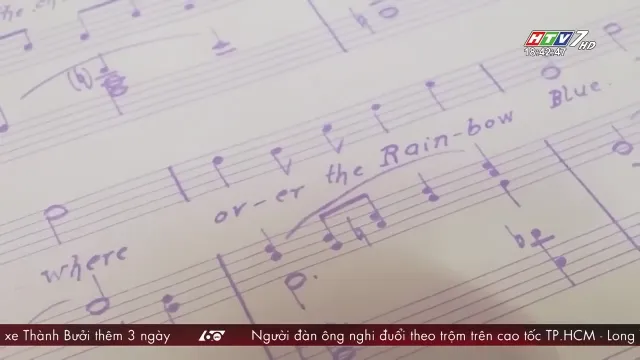 HTV7 HD
18:42:47
where ov-er the Rain-bow Blue
xe Thành Bưởi thêm 3 ngày 60 Người đàn ông nghi đuổi theo trộm trên cao tốc TP.HCM - Long